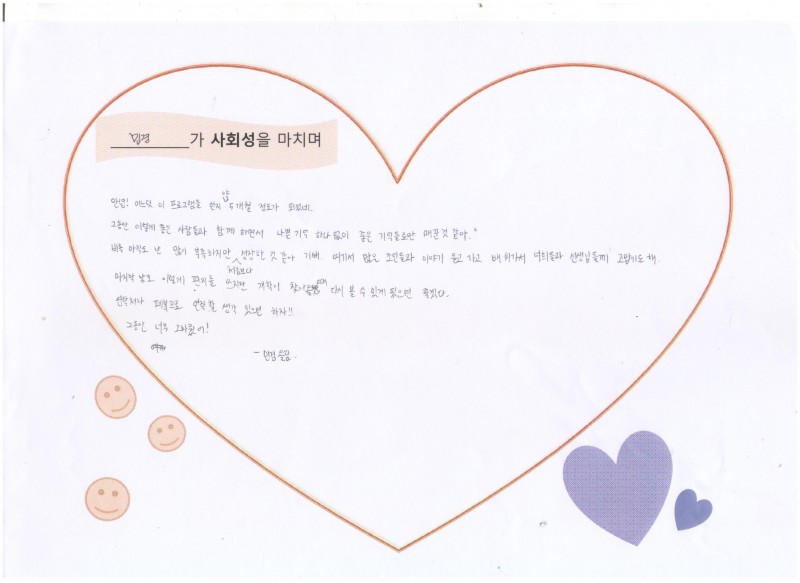 민경가 사회성을 마치며
안녕! 어느덧 이 프로그램을 한지 약 5개월 정도가 되었네.
그동안 이렇게 좋은 사람들과 함께 하면서 나쁜 기억 하나 없이 좋은 기억들로만 채운것 같아.
비록 아직도 난 많이 부족하지만 처음보다 성장한 것 같아 기뻐. 여기서 많은 조원들과 이야기 듣고 가고 배워가서 너희들과 선생님들께 고맙기도 해.
마지막 날로 이렇게 편지를 쓰지만 개학이 다시 볼 수 있게 됐으면 좋겠다.
연락처나 페북으로 연락할 생각 있으면 하자!!
그동안 너무 고마웠어!
- 민경